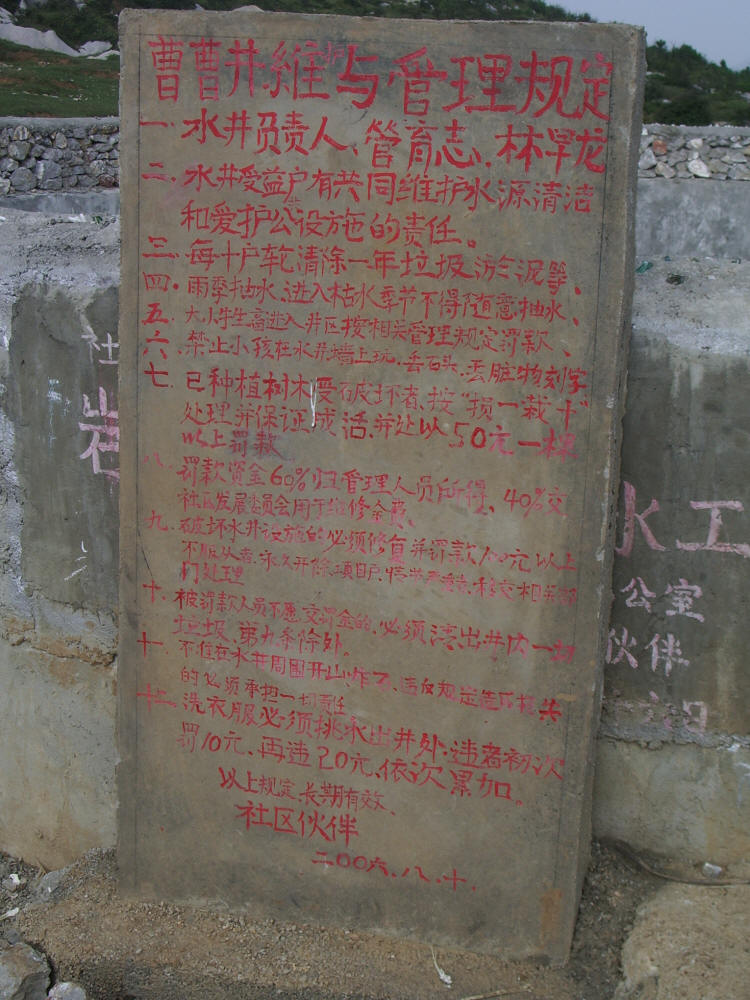 曹曹井維护与管理规定
一、水井负责人、管育志、林早龙
二、水井受益户有共同维护水源清洁
和爱护公设施的责任。
三、每十户轮清除一年垃圾淤泥等、
四、雨季抽水、进入枯水季节不得随意抽水、
五、大小牛生畜进入井区按相关管理规定罚款、
六、禁止小孩在水井墙上玩、丢石头、丢脏物刻字
七、已种植树木受破坏者、按"损一栽十"
处理并保证成活、并处以50元一棵
以上罚款
八、罚款资金60%归管理人员所得、40%交
社区发展委员会用于维修金费、
九、破坏水井设施的必须修复并罚款100元以上
不服从者、永久开除项目户、情节严重者、移交相关部
门处理
十、被罚款人员不愿交罚金的、必须清出井内一切
垃圾、第九条除外。
十一、不准在水井周围开山炸石、违反规定造
的必须承担一切责任
十二、洗衣服必须挑水出井外、违者初次
罚10元、再违20元、依次累加。
以上规定、长期有效、
社区伙伴
二00六、八、十、
社
岩
水工
公室
伙伴